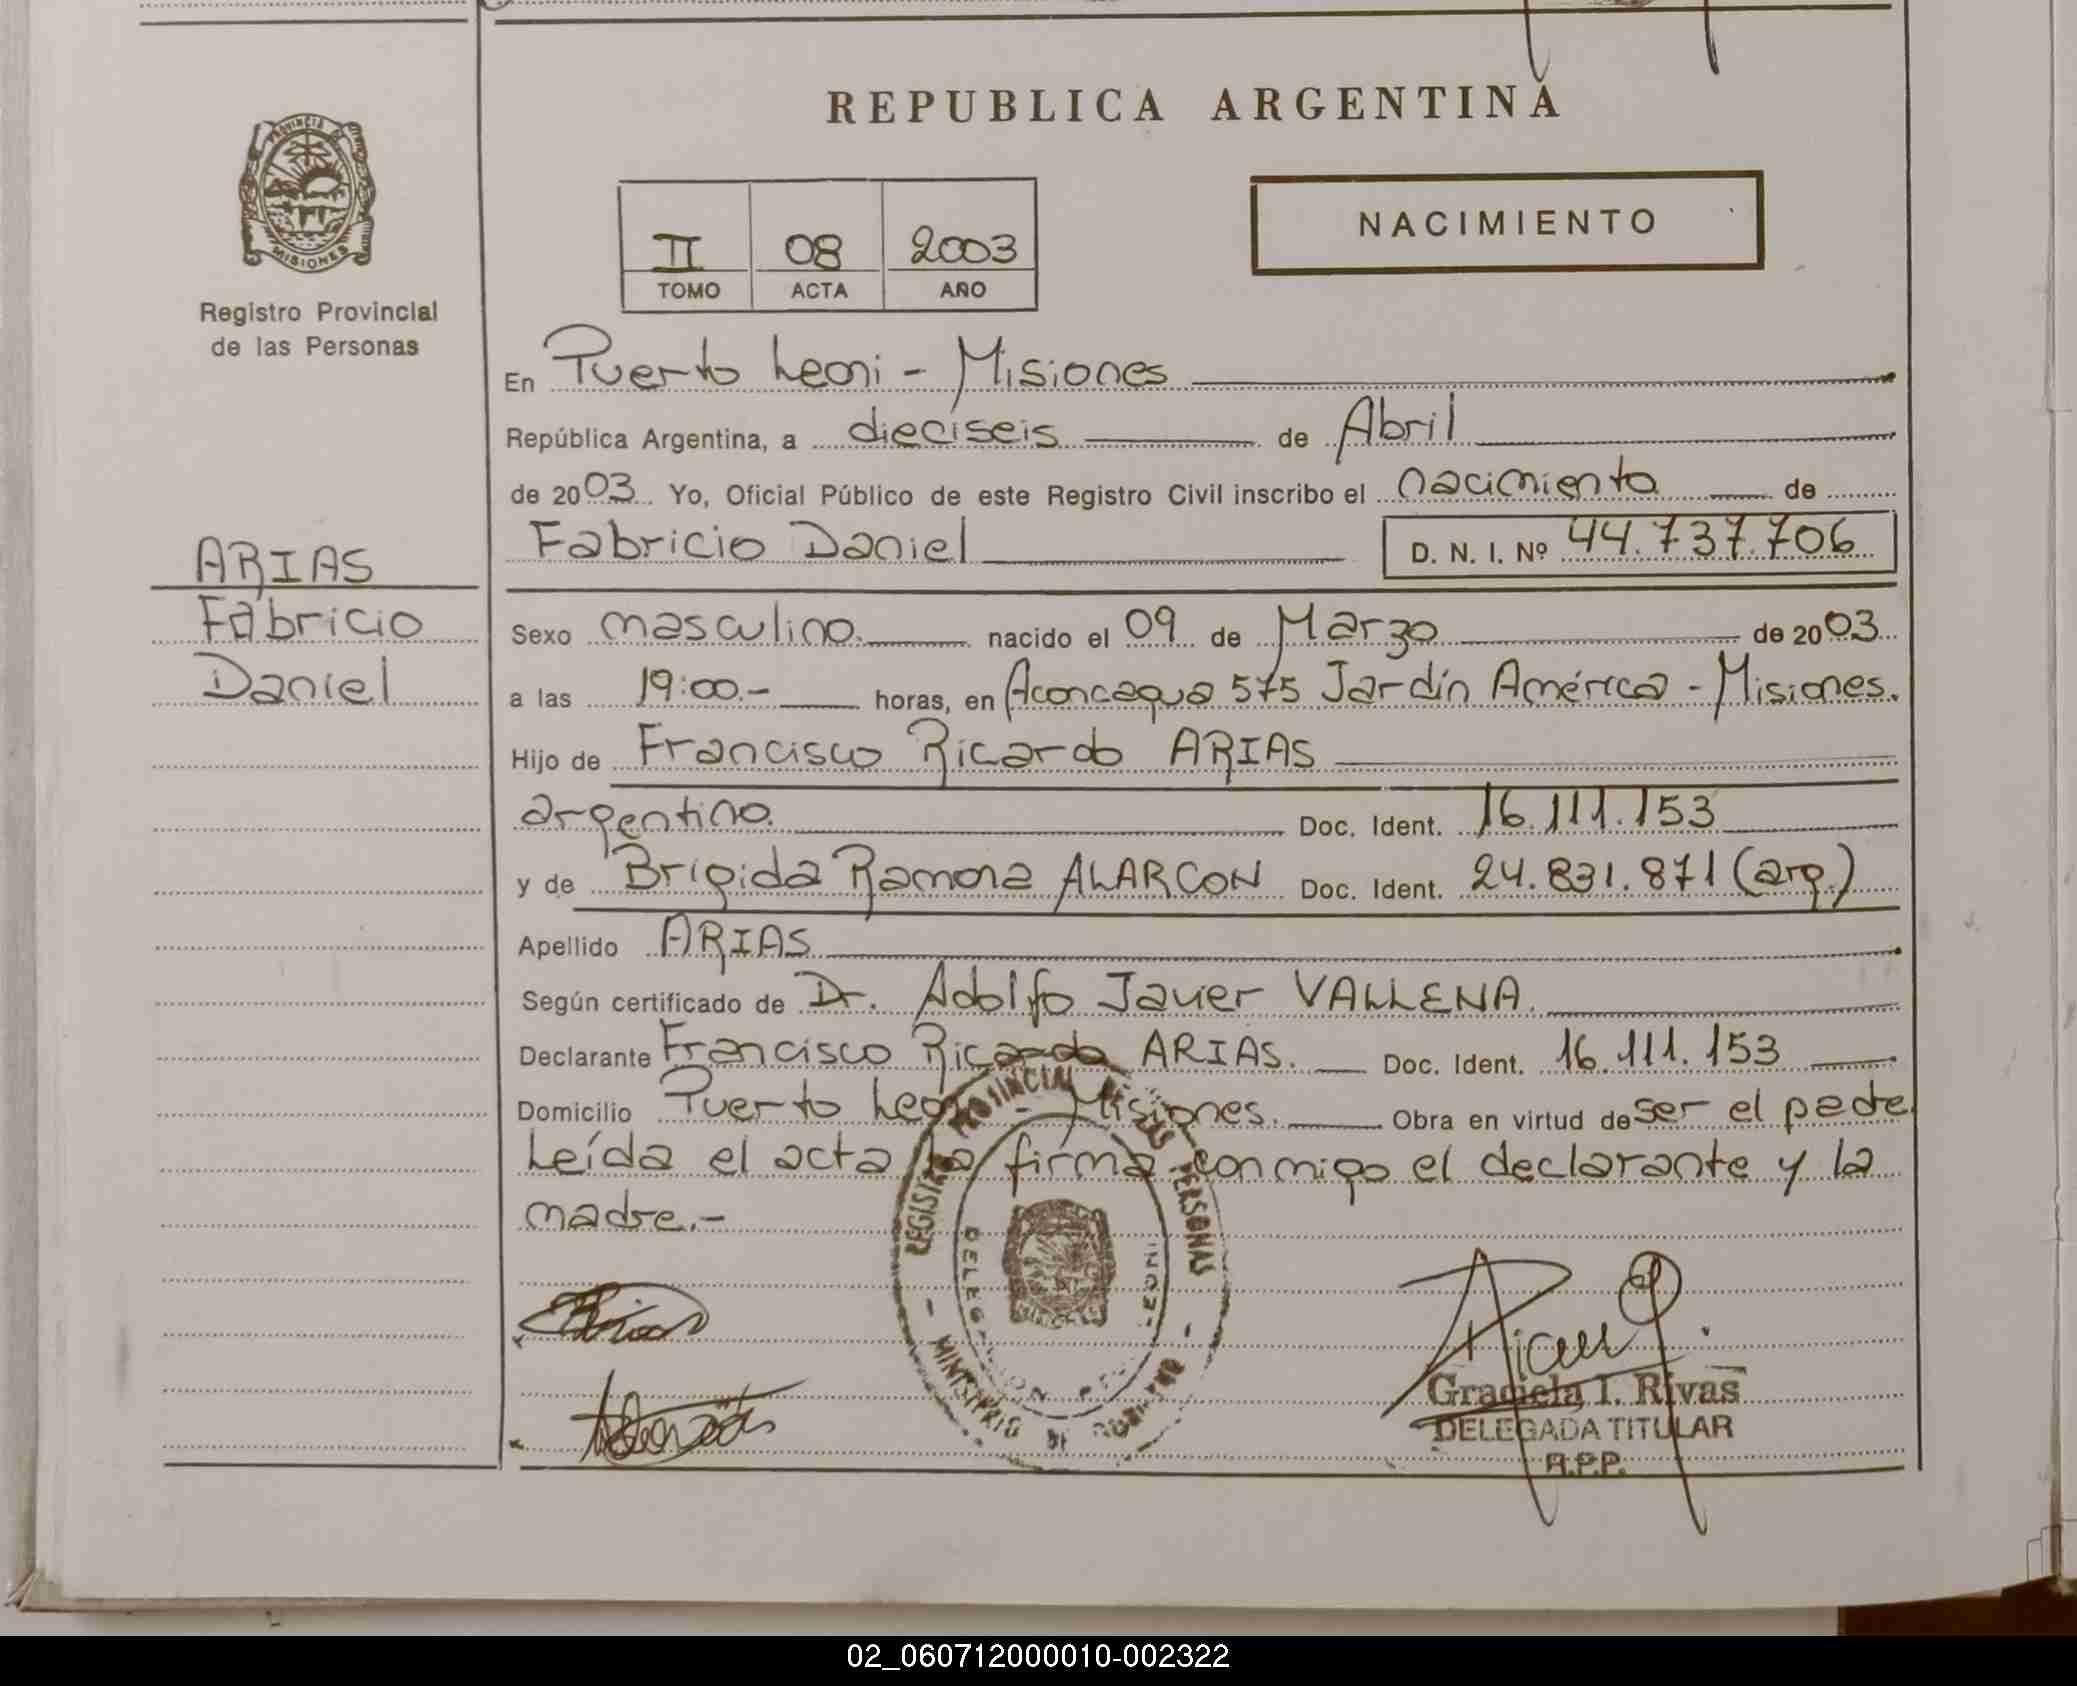 REPUBLICA ARGENTINA
PROVINCIA DE
MISIONES
Registro Provincial
de las Personas
II 08 2003
TOMO ACTA AÑO
NACIMIENTO
En Puerto Leoni - Misiones
República Argentina, a dieciseis de Abril
de 2003 Yo, Oficial Público de este Registro Civil inscribo el nacimiento de
Fabricio Daniel D. N. I. Nº 44.737.706
ARIAS
Fabricio
Daniel
Sexo masculino. nacido el 09 de Marzo de 2003
a las 19:00.- horas, en Aconcagua 575 Jardín América - Misiones.
Hijo de Francisco Ricardo ARIAS
argentino. Doc. Ident. 16.111.153
y de Brigida Ramona ALARCON Doc. Ident. 24.831.871 (arg.)
Apellido ARIAS
Según certificado de Dr. Adolfo Javier VALLENA.
Declarante Francisco Ricardo ARIAS. Doc. Ident. 16.111.153
Domicilio Puerto Leoni - Misiones. Obra en virtud de ser el padre
Leída el acta la firma conmigo el declarante y la
madre.-
REGISTRO PROVINCIAL DE LAS PERSONAS
- MINISTERIO DE GOBIERNO -
Graciela I. Rivas
DELEGADA TITULAR
R.P.P.
02_060712000010-002322